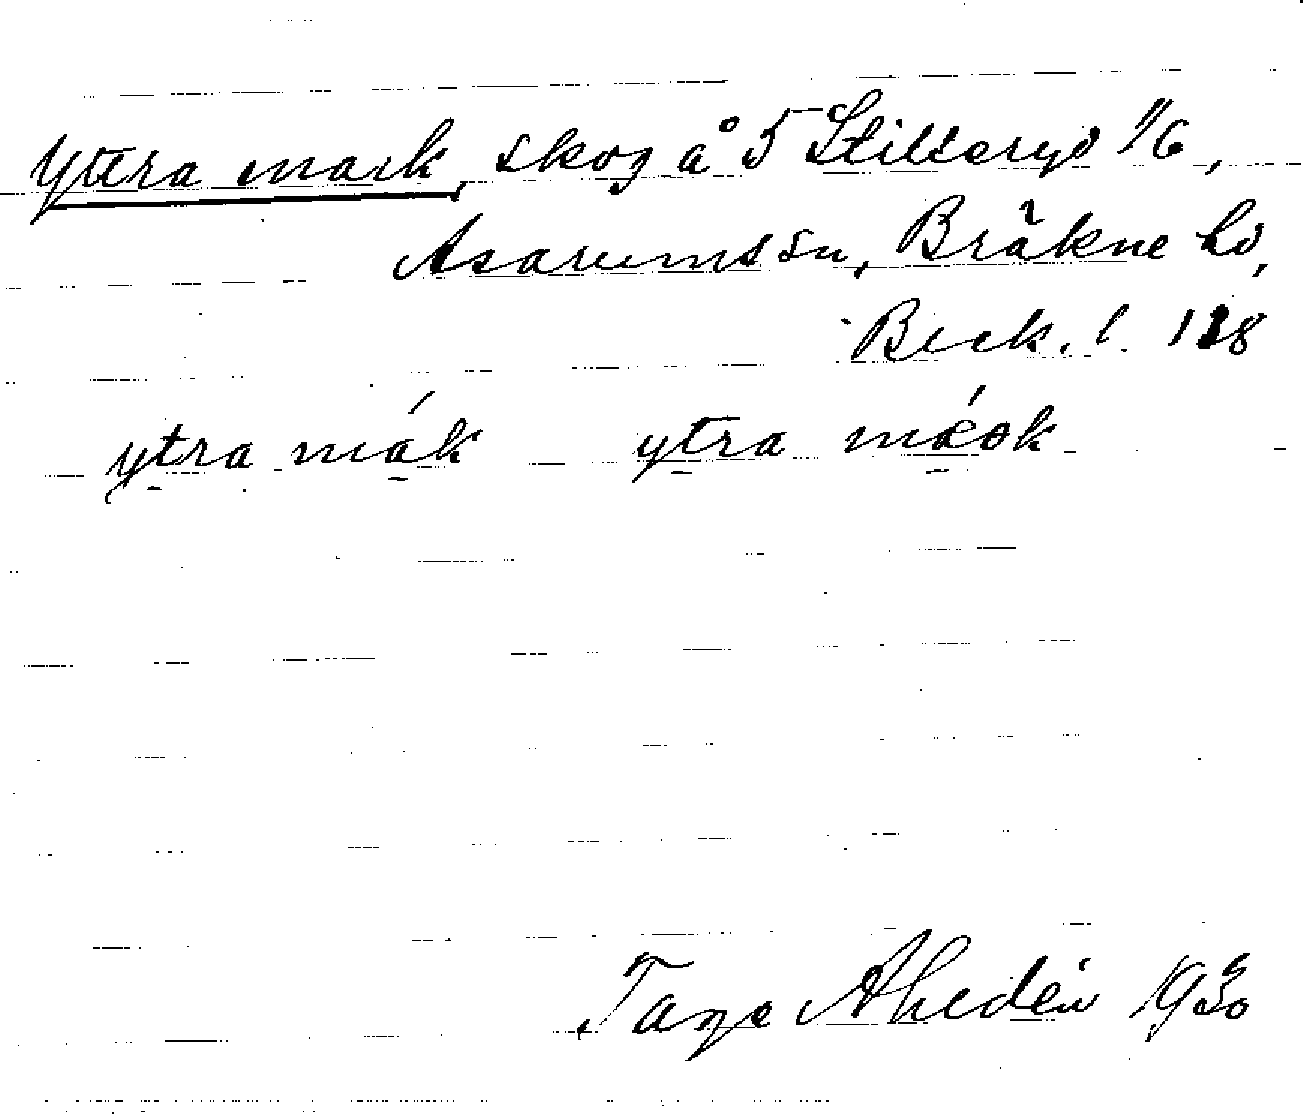 Yttra mark, skog å 5 Stilleryd 1/6,
Asarums sn, Bräkne hd,
Bleck. l. 118
ytra mák ytra máok
Tage Ahldén 1930